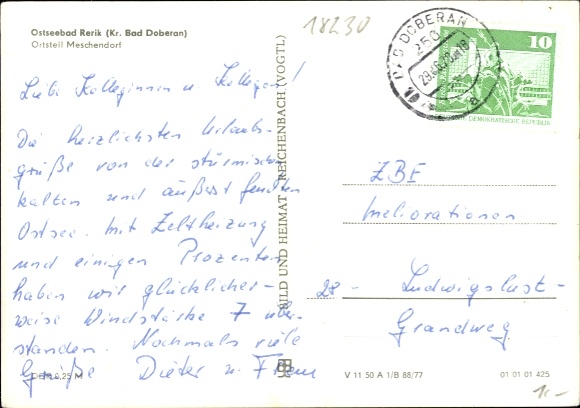 Ostseebad Rerik (Kr. Bad Doberan)
Ortsteil Meschendorf
18230
BAD DOBERAN
250
10
DEUTSCHE DEMOKRATISCHE REPUBLIK
Liebe Kolleginnen u. Kollegen!
Die herzlichsten Urlaubs-
grüße von der stürmischen
kalten und äußerst feuchten
Ostsee. Mit Zeltheizung
und einigen Prozenten
haben wir glücklicher-
weise Windstärke 7 über-
standen. Nochmals viele
Grüße Dieter u. Frau
BILD UND HEIMAT REICHENBACH (VOGTL)
ZBE
Meliorationen
28 - Ludwigslust -
Grandweg
0,25 M
V 11 50 A 1/B 88/77
01 01 01 425
1,-